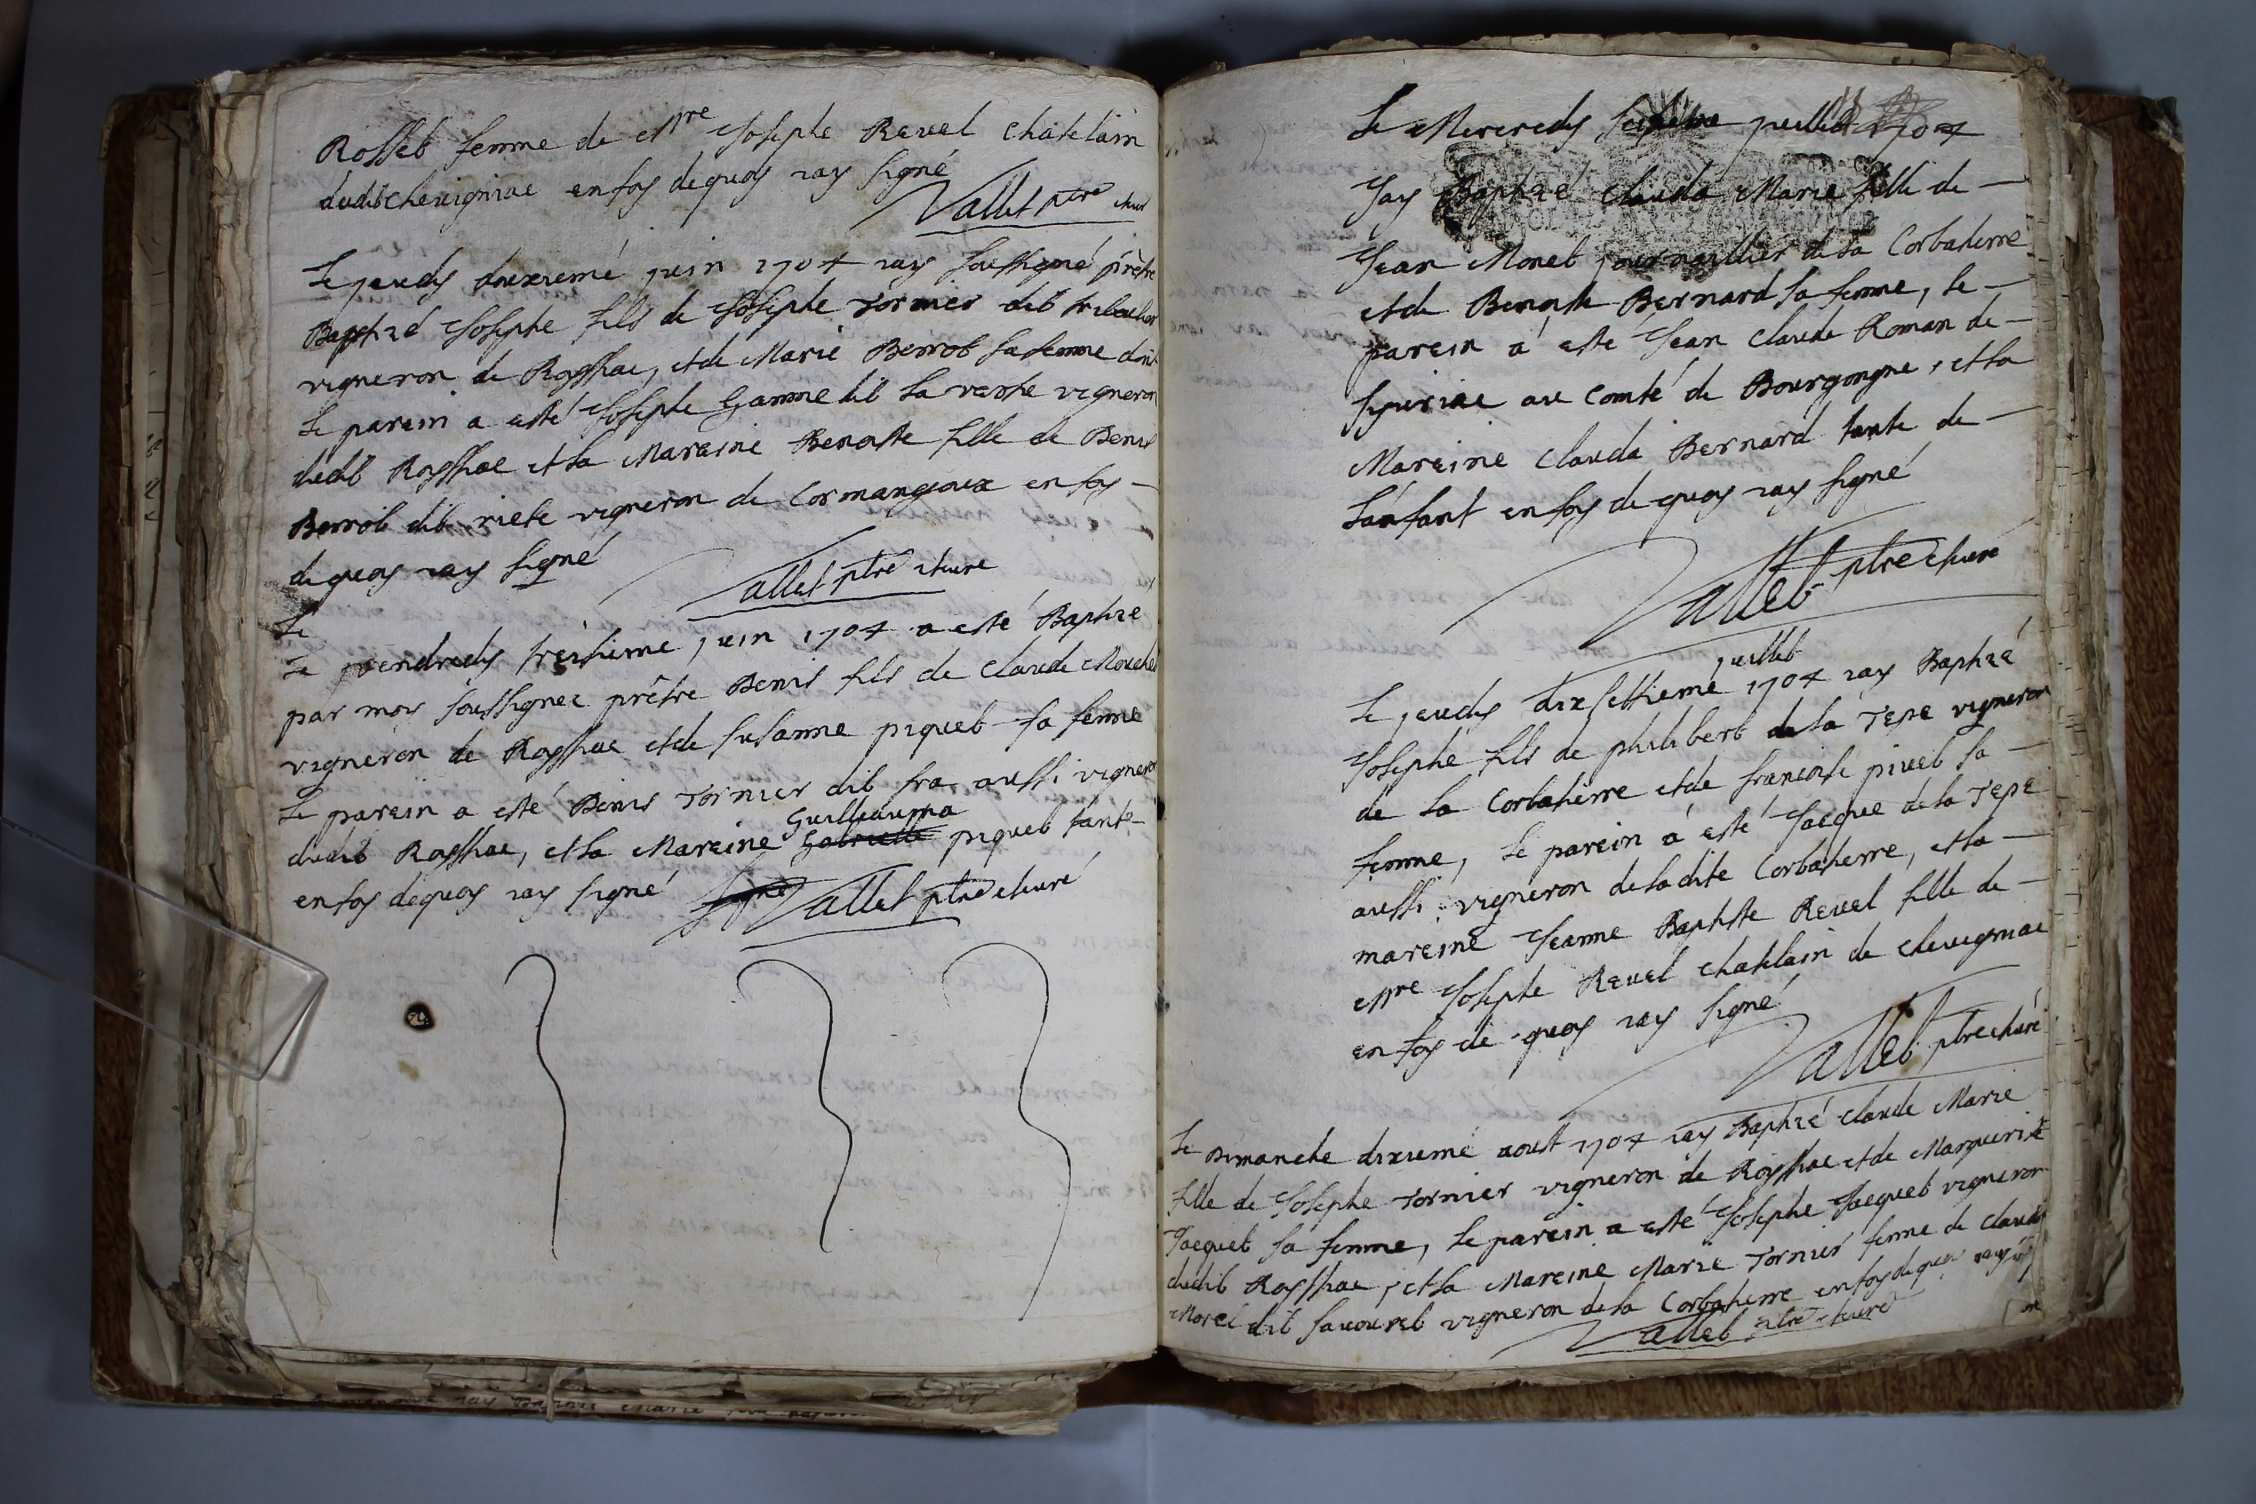 Rosset femme de Mre Josephe Revel Chatelain
dudit Chevigniac en foy de quoy iay signé
Vallet ptre curé
Le jeudy douxiemé juin 1704 iay soussigné prètre
Baptizé Josephe fils de Josephe Tornier dit
vigneron de Royssiac, et de Marie Berrot sa femme dont
le parein a esté Josephe Gamme dit la verse vigneron
dudit Royssiac et la Mareine Benoiste fille de Benis
Berrot dit riete vigneron de Cormangoux en foy
de quoy iay signé
Vallet ptre curé
Le
Le vendredy treisieme juin 1704 a esté Baptize
par moy soussignee prètre Benis fils de Claude Mouche
vigneron de Royssiac et de Susanne piquet sa femme
le parein a esté Benis Tornier dit fra aussi vigneron
Guilleauma
dudit Royssiac, et la Mareine Gabrielle piquet tante
en foy de quoy iay signé signé Vallet ptre curé
Le Mercredy juillet 1704
Jay Baptizé Clauda Marie fille de
Jean Monet journaillier de la Corbatierre
et de Benoiste Bernard sa femme, le
parein a esté Jean Claude Roman de
au Comté de Bourgongne, et la
Mareine Clauda Bernard tante de
L'anfant en foy de quoy iay signé
Vallet ptre curé
juillet
Le jeudy dix settiemé 1704 iay Baptizé
Josephe fils de philibert de la Tepe vigneron
de la Corbatierre et de francoise pivet sa
femme, le parein a esté Jacque de la Tepe
aussi vigneron de ladite Corbatierre, et la
mareine Jeanne Baptiste Revel fille de
Mre Josephe Revel Chatelain de Chevigniac
en foy de quoy iay signé
Vallet ptre curé
Le Dimanche dixiemé aoust 1704 iay Baptizé Claude Marie
fille de Josephe Tornier vigneron de Royssiac et de Marguerite
Jacquet sa femme, le parein a esté Josephe Jacquet vigneron
dudit Royssiac, et la Mareine Marie Tornier femme de Claude
Morel dit savouret vigneron de la Corbatierre en foy de quoy iay
Vallet ptre curé